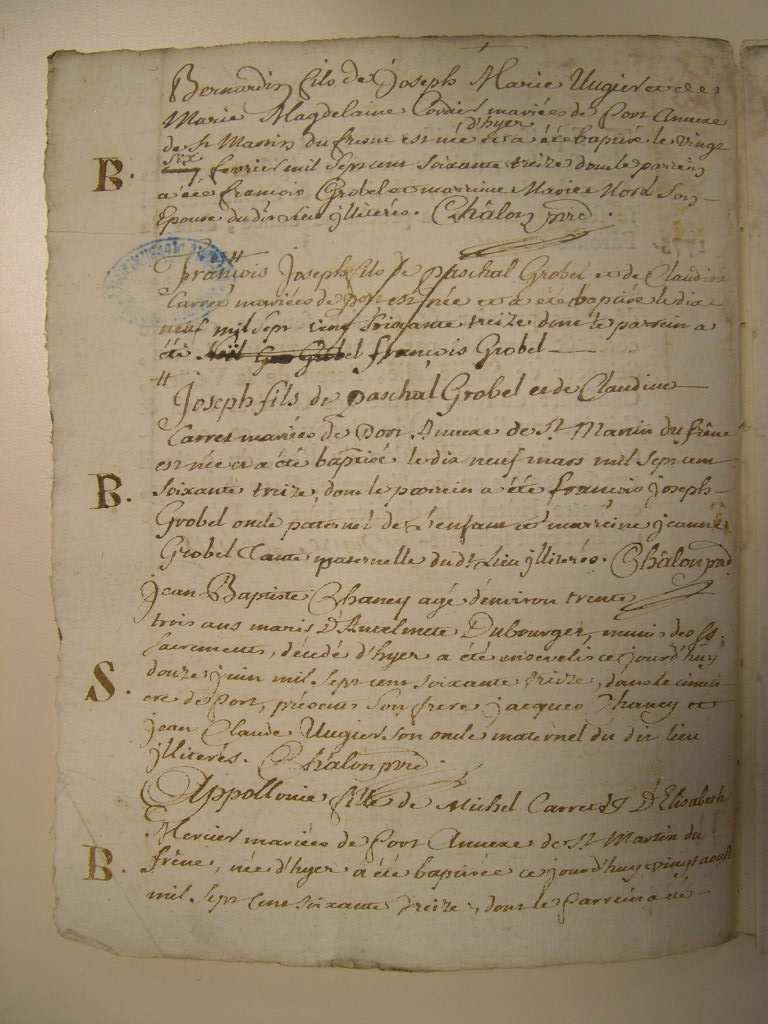 Bernardin fils de Joseph Marie Uugier et de
Marie Magdelaine Cordier mariées de Port Annexe
de St Martin du fresne est née d'hyer et a été baptisé le vingt
B. six fevrier mil sept cent soixante treize dont le parrein
a été françois Grobel et marrine Marie Nord son
Epouse du dit lieu jlliteres. Châlon pvic.
françois Joseph fils de paschal Grobel et de Claudine
Carret mariées de port est née et a été baptisé le dix
neuf mil sept cent soixante treize dont le parrein a
été françois Grobel
Joseph fils de paschal Grobel et de Claudine
Carret mariées de Port Annexe de St Martin du frêne
est née et a été baptisé le dix neuf mars mil sept cent
B. soixante treize, dont le parrein a été françois joseph
Grobel oncle paternel de l'enfant et marreine jeanne
Grobel Tante maternelle du dt Lieu jlliterés. Châlon pvic
jean Baptiste Chaney agé d'environ trente
trois ans maris D'Antelmete Dubourget, muni des SS.
sacrements, decedé d'hyer a été ensevelis ce jourd'huy
S. douze juin mil sept cent soixante treize, dans le cimeti
ere de Port, présents son frere jacques Chaney et
jean Claude Uugier son oncle maternel du dit lieu
jlliterés. Châlon pvic.
Appollonie fille de Michel Carret & D'Elisabeth
Mercier mariées de Port Annexe de St Martin du
B. frêne, née d'hyer a été baptisée ce jourd'huy vingt aoust
mil sept cent soixante treize, dont le Parrein a été